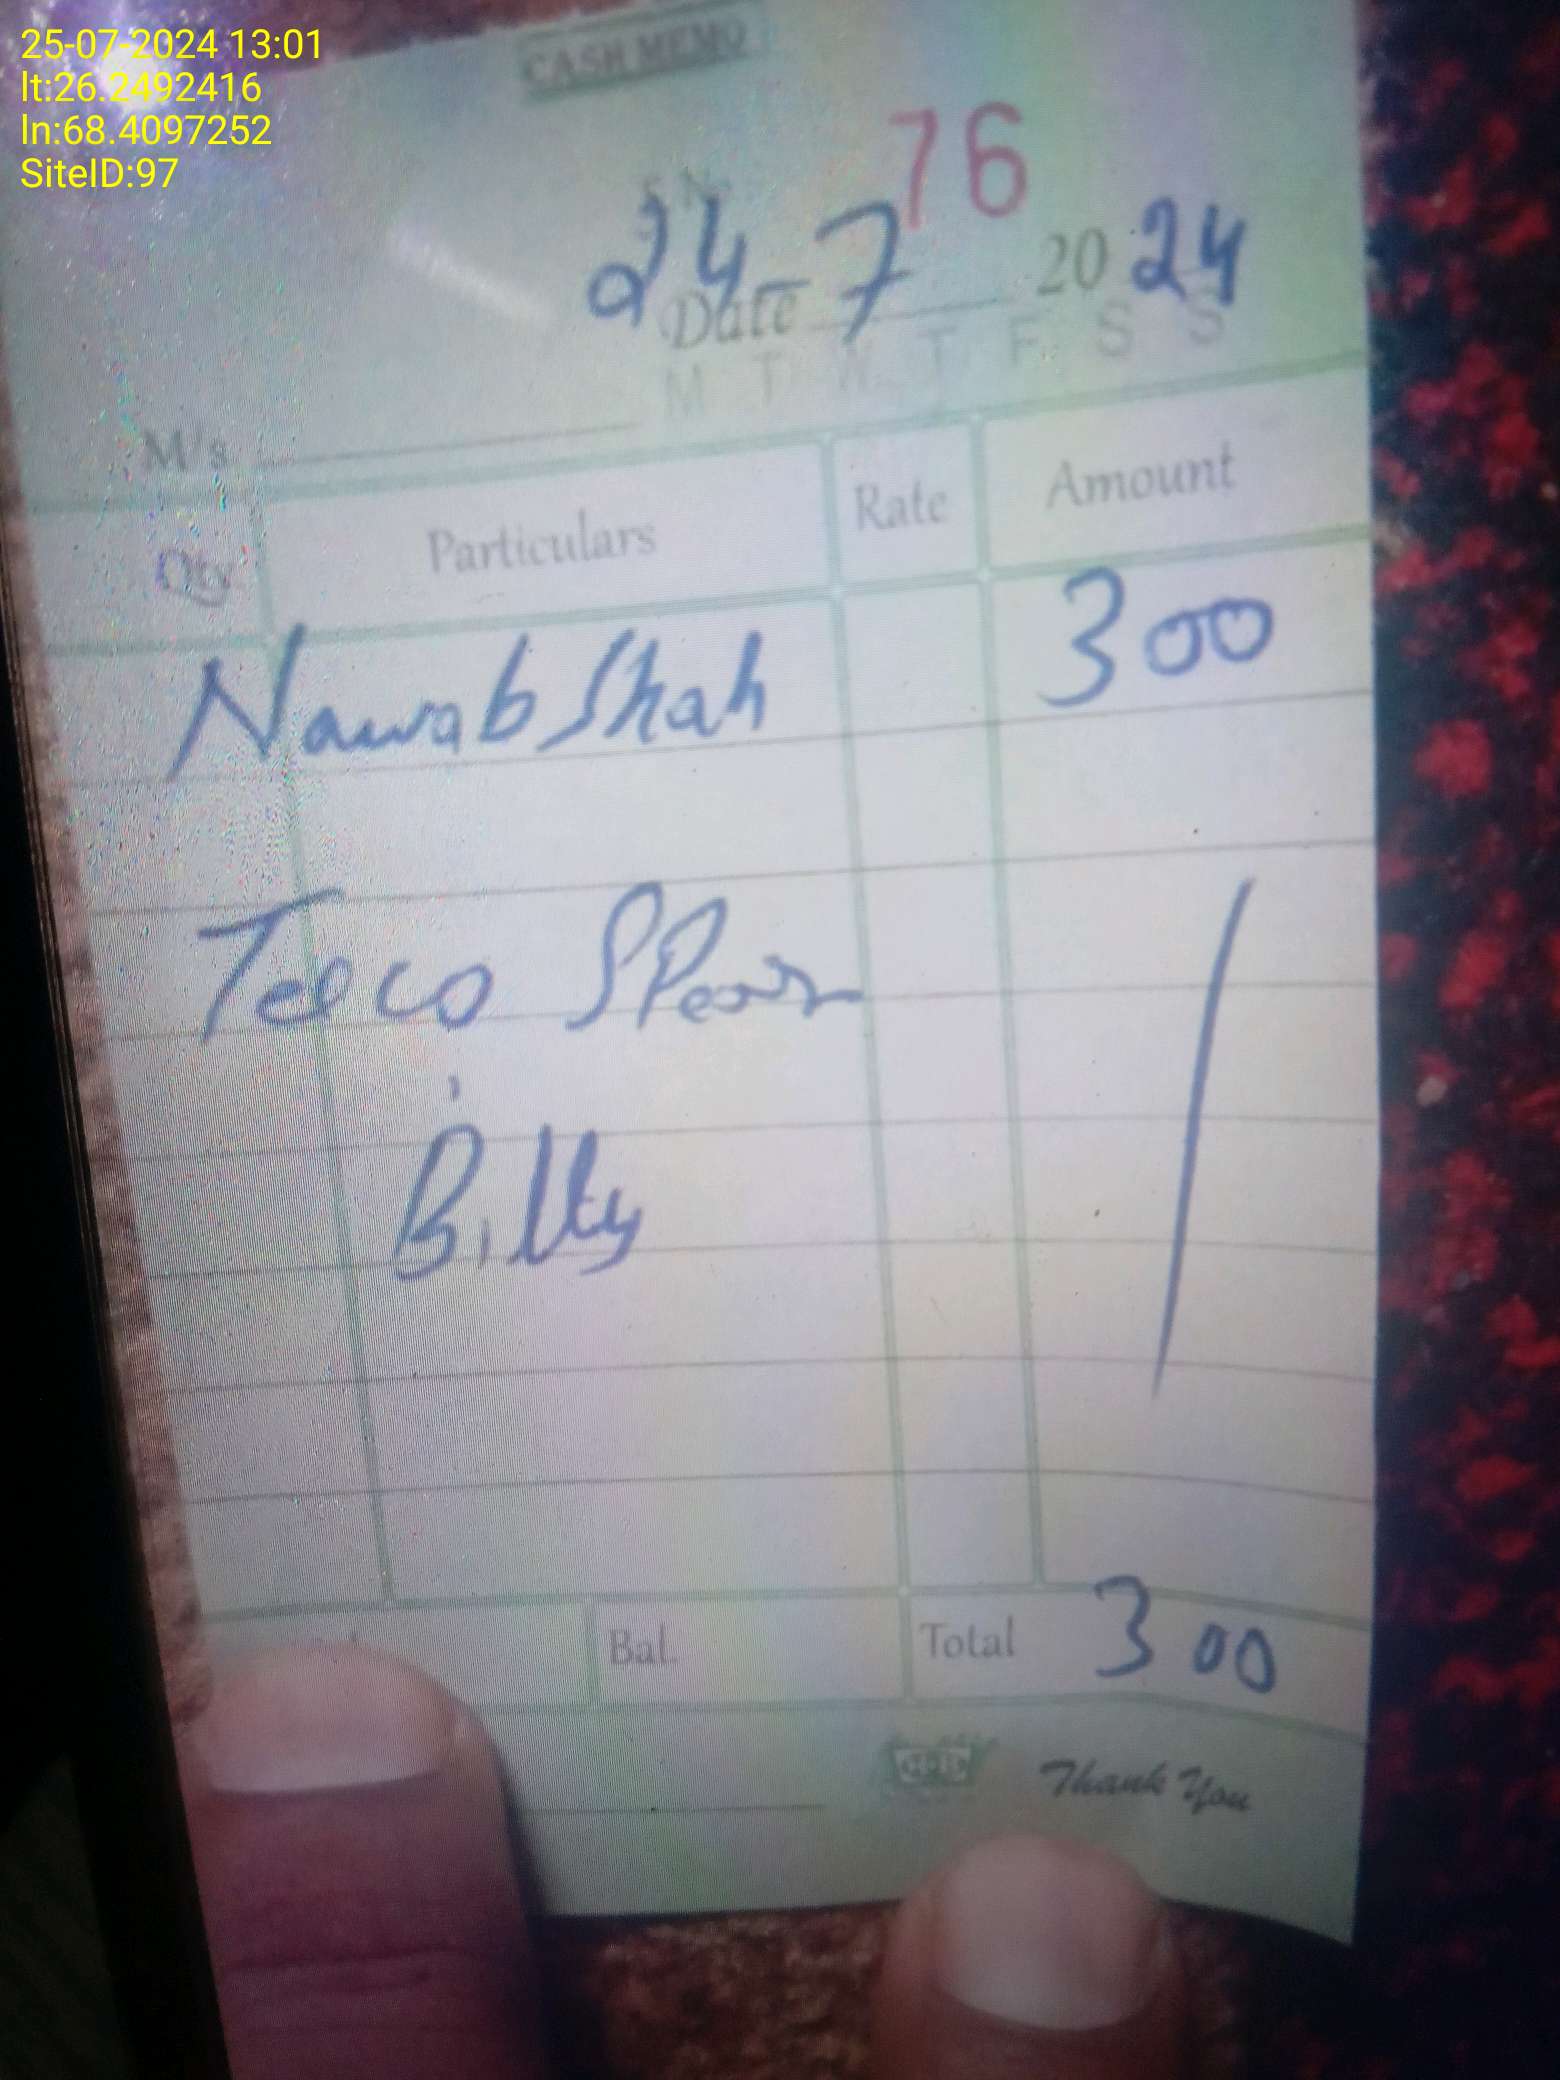 25-07-2024 13:01
lt:26.2492416
ln:68.4097252
SiteID:97
CASH MEMO
S.No. 76
Date 24-7 2024
M T W T F S S
M/s
Qty Particulars Rate Amount
NawabShah 300
Bilty
Bal. Total 300
Thank You